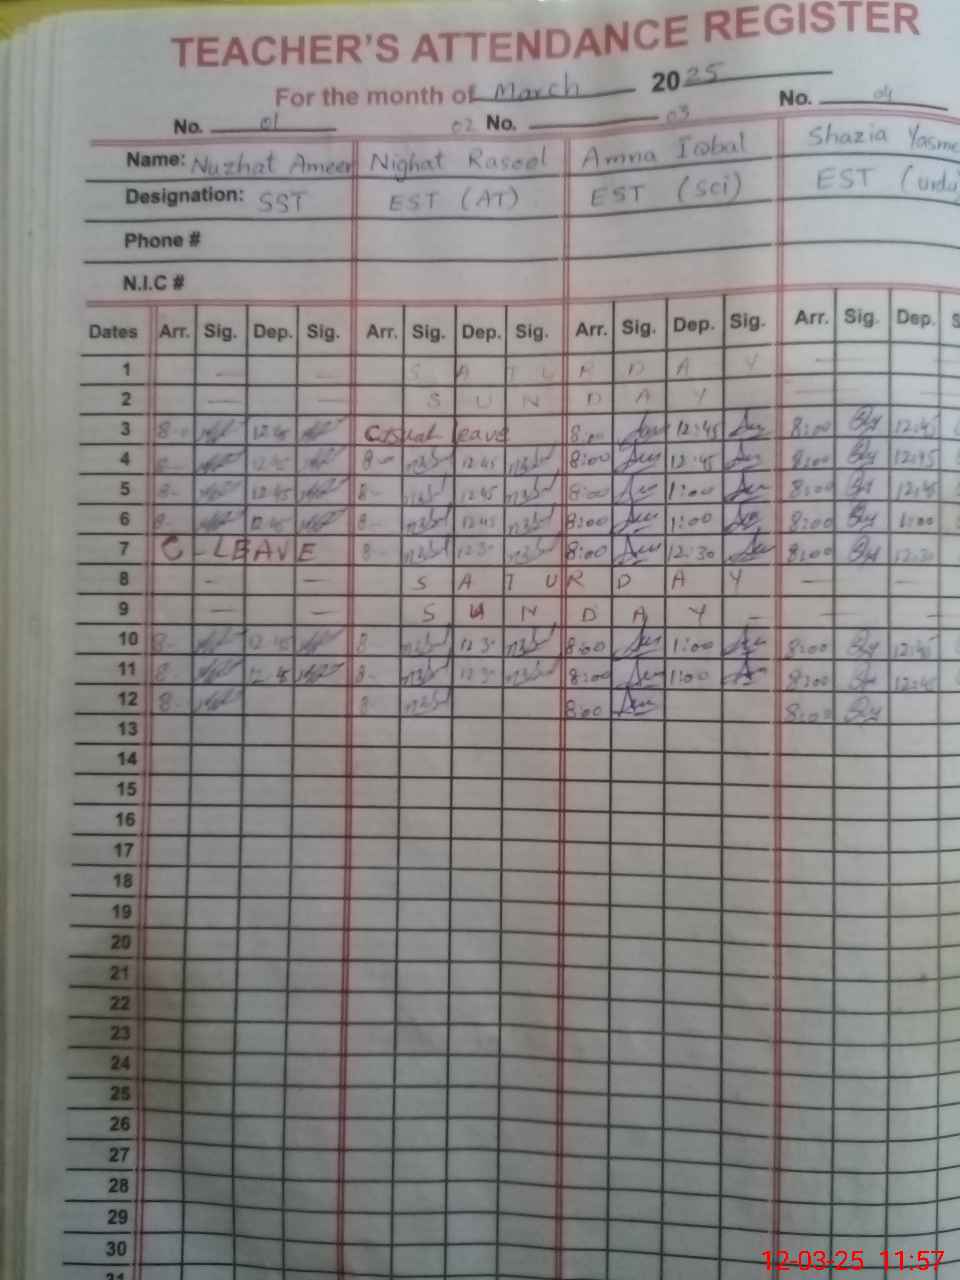 TEACHER'S ATTENDANCE REGISTER
For the month of March 2025
No. 01 02 No. 03 No. 04
Name: Nuzhat Ameer Nighat Rasool Amna Iqbal Shazia Yasme
Designation: SST EST (AT) EST (Sci) EST (Urdu
Phone #
N.I.C #
Dates Arr. Sig. Dep. Sig. Arr. Sig. Dep. Sig. Arr. Sig. Dep. Sig. Arr. Sig. Dep. S
1 — — S A T U R D A Y — —
2 — — S U N D A Y — —
3 8- 12:45 Casual leave 8:00 12:45 8:00 12:45
4 8- 12:45 8- 12:45 8:00 12:45 8:00 12:45
5 8- 12:45 8- 12:45 8:00 1:00 8:00 12:45
6 8- 12:45 8- 12:45 8:00 1:00 8:00 1:00
7 C-LEAVE 8- 12:30 8:00 12:30 8:00 12:30
8 — — S A T U R D A Y — —
9 — — S U N D A Y — — —
10 8- 12:45 8- 12:30 8:00 1:00 8:00 12:45
11 8- 12:45 8- 12:30 8:00 1:00 8:00 12:45
12 8- 8- 8:00 8:00
13
14
15
16
17
18
19
20
21
22
23
24
25
26
27
28
29
30
31
12-03-25 11:57